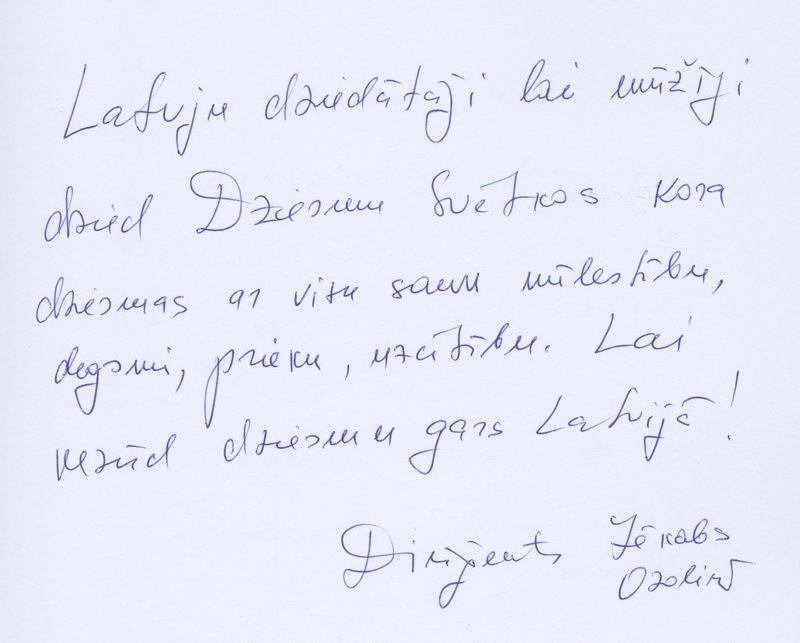 Latvju dziedātāji lai mūžīgi
dzied Dziesmu Svētkos kora
dziesmas ar visu savu mīlestību,
degsmi, prieku, uzcītību. Lai
nezūd dziesmu gars Latvijā!
Diriģents Jēkabs
Ozoliņš